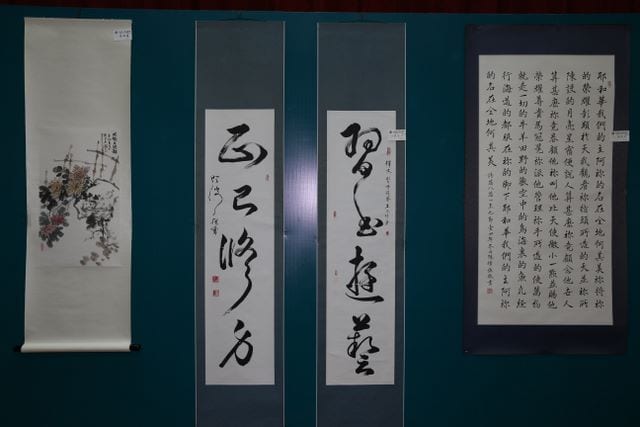 耶和華我們的主阿祢的名在全地何其美祢將祢
的榮耀彰顯於天我觀看祢指頭所造的天並祢所
陳設的月亮星宿便說人算甚麼祢竟顧念他世人
算甚麼祢竟眷顧他祢叫他比天使微小一點並賜他
榮耀尊貴為冠冕祢派他管理祢手所造的使萬物
就是一切的牛羊田野的獸空中的鳥海裏的魚凡經
行海道的都服在祢的腳下耶和華我們的主阿祢
的名在全地何其美
習 遊藝
正己修身